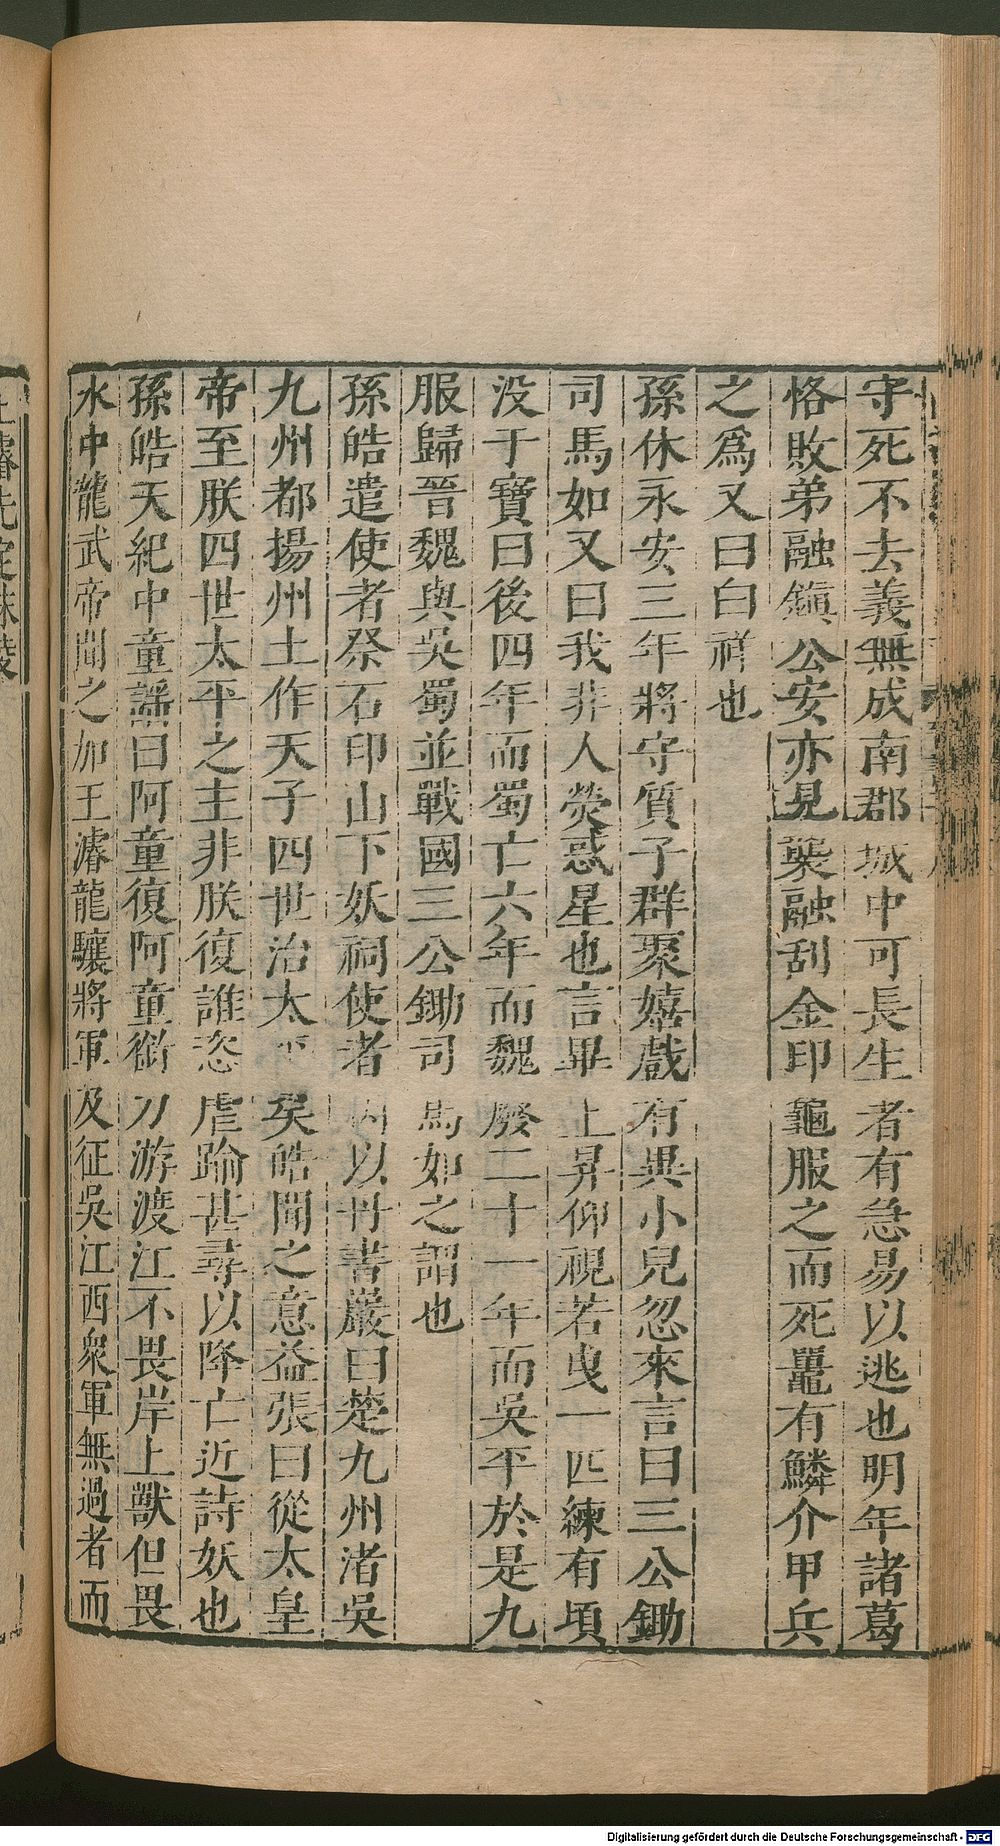 守死不去義無成南郡城中可長生者有急易以逃也明年諸葛
恪敗弟融鎭公安亦見襲融刮金印龜服之而死鼉有鱗介甲兵
之爲又曰白祥也
孫休永安三年將守質子群聚嬉戲有異小兒忽來言曰三公鋤
司馬如又曰我非人熒惑星也言畢上昇仰視若曳一匹練有頃
没于寶曰後四年而蜀亡六年而魏廢二十一年而吳平於是九
服歸晉魏與吳蜀並戰國三公鋤司馬如之謂也
孫皓遣使者祭石印山下妖祠使者因以丹書巖曰楚九州渚吳
九州都揚州土作天子四世治太平矣皓聞之意益張曰從太皇
帝至朕四世太平之主非朕復誰恣虐踰甚尋以降亡近詩妖也
孫皓天紀中童謠曰阿童復阿童銜刀游渡江不畏岸上獸但畏
水中龍武帝聞之加王濬龍驤將軍及征吳江西衆軍無過者而
Digitalisierung gefördert durch die Deutsche Forschungsgemeinschaft - DFG